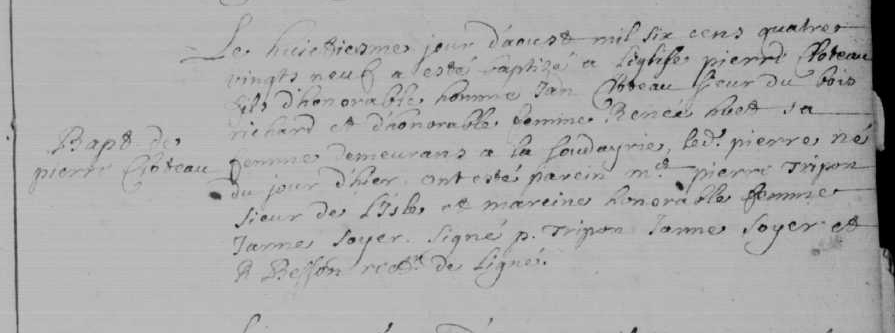 Le huictiesme jour d'aoust mil six cens quatre
vingts neuf a esté baptisé a l'eglise pierre Cloteau
fils d'honorable homme Jan Cloteau sieur du bois
richard et d'honorable femme Renée huet sa
femme demeurans a la ledt. pierre né
du jour d'hier. ont esté parein mtre pierre Tripon
sieur de l'Isle et mareine honorable femme
Janne Soyer. signé p. Tripon Janne Soyer et
R Besson rectr. de Ligné.
Bapt de
pierre Cloteau